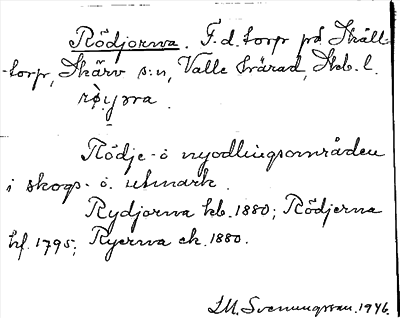 Rödjorna. F.d. torp på Skåll-
torp, Skärv s:n, Valle härad, Skb. l.
røyṛna.
Rödje- o nyodlingsområden
i skogs- o. utmark.
Rydjorna kb. 1880; Rödjerna
hf. 1795; Ryerna ek. 1880.
I.M. Svenungsson. 1946.